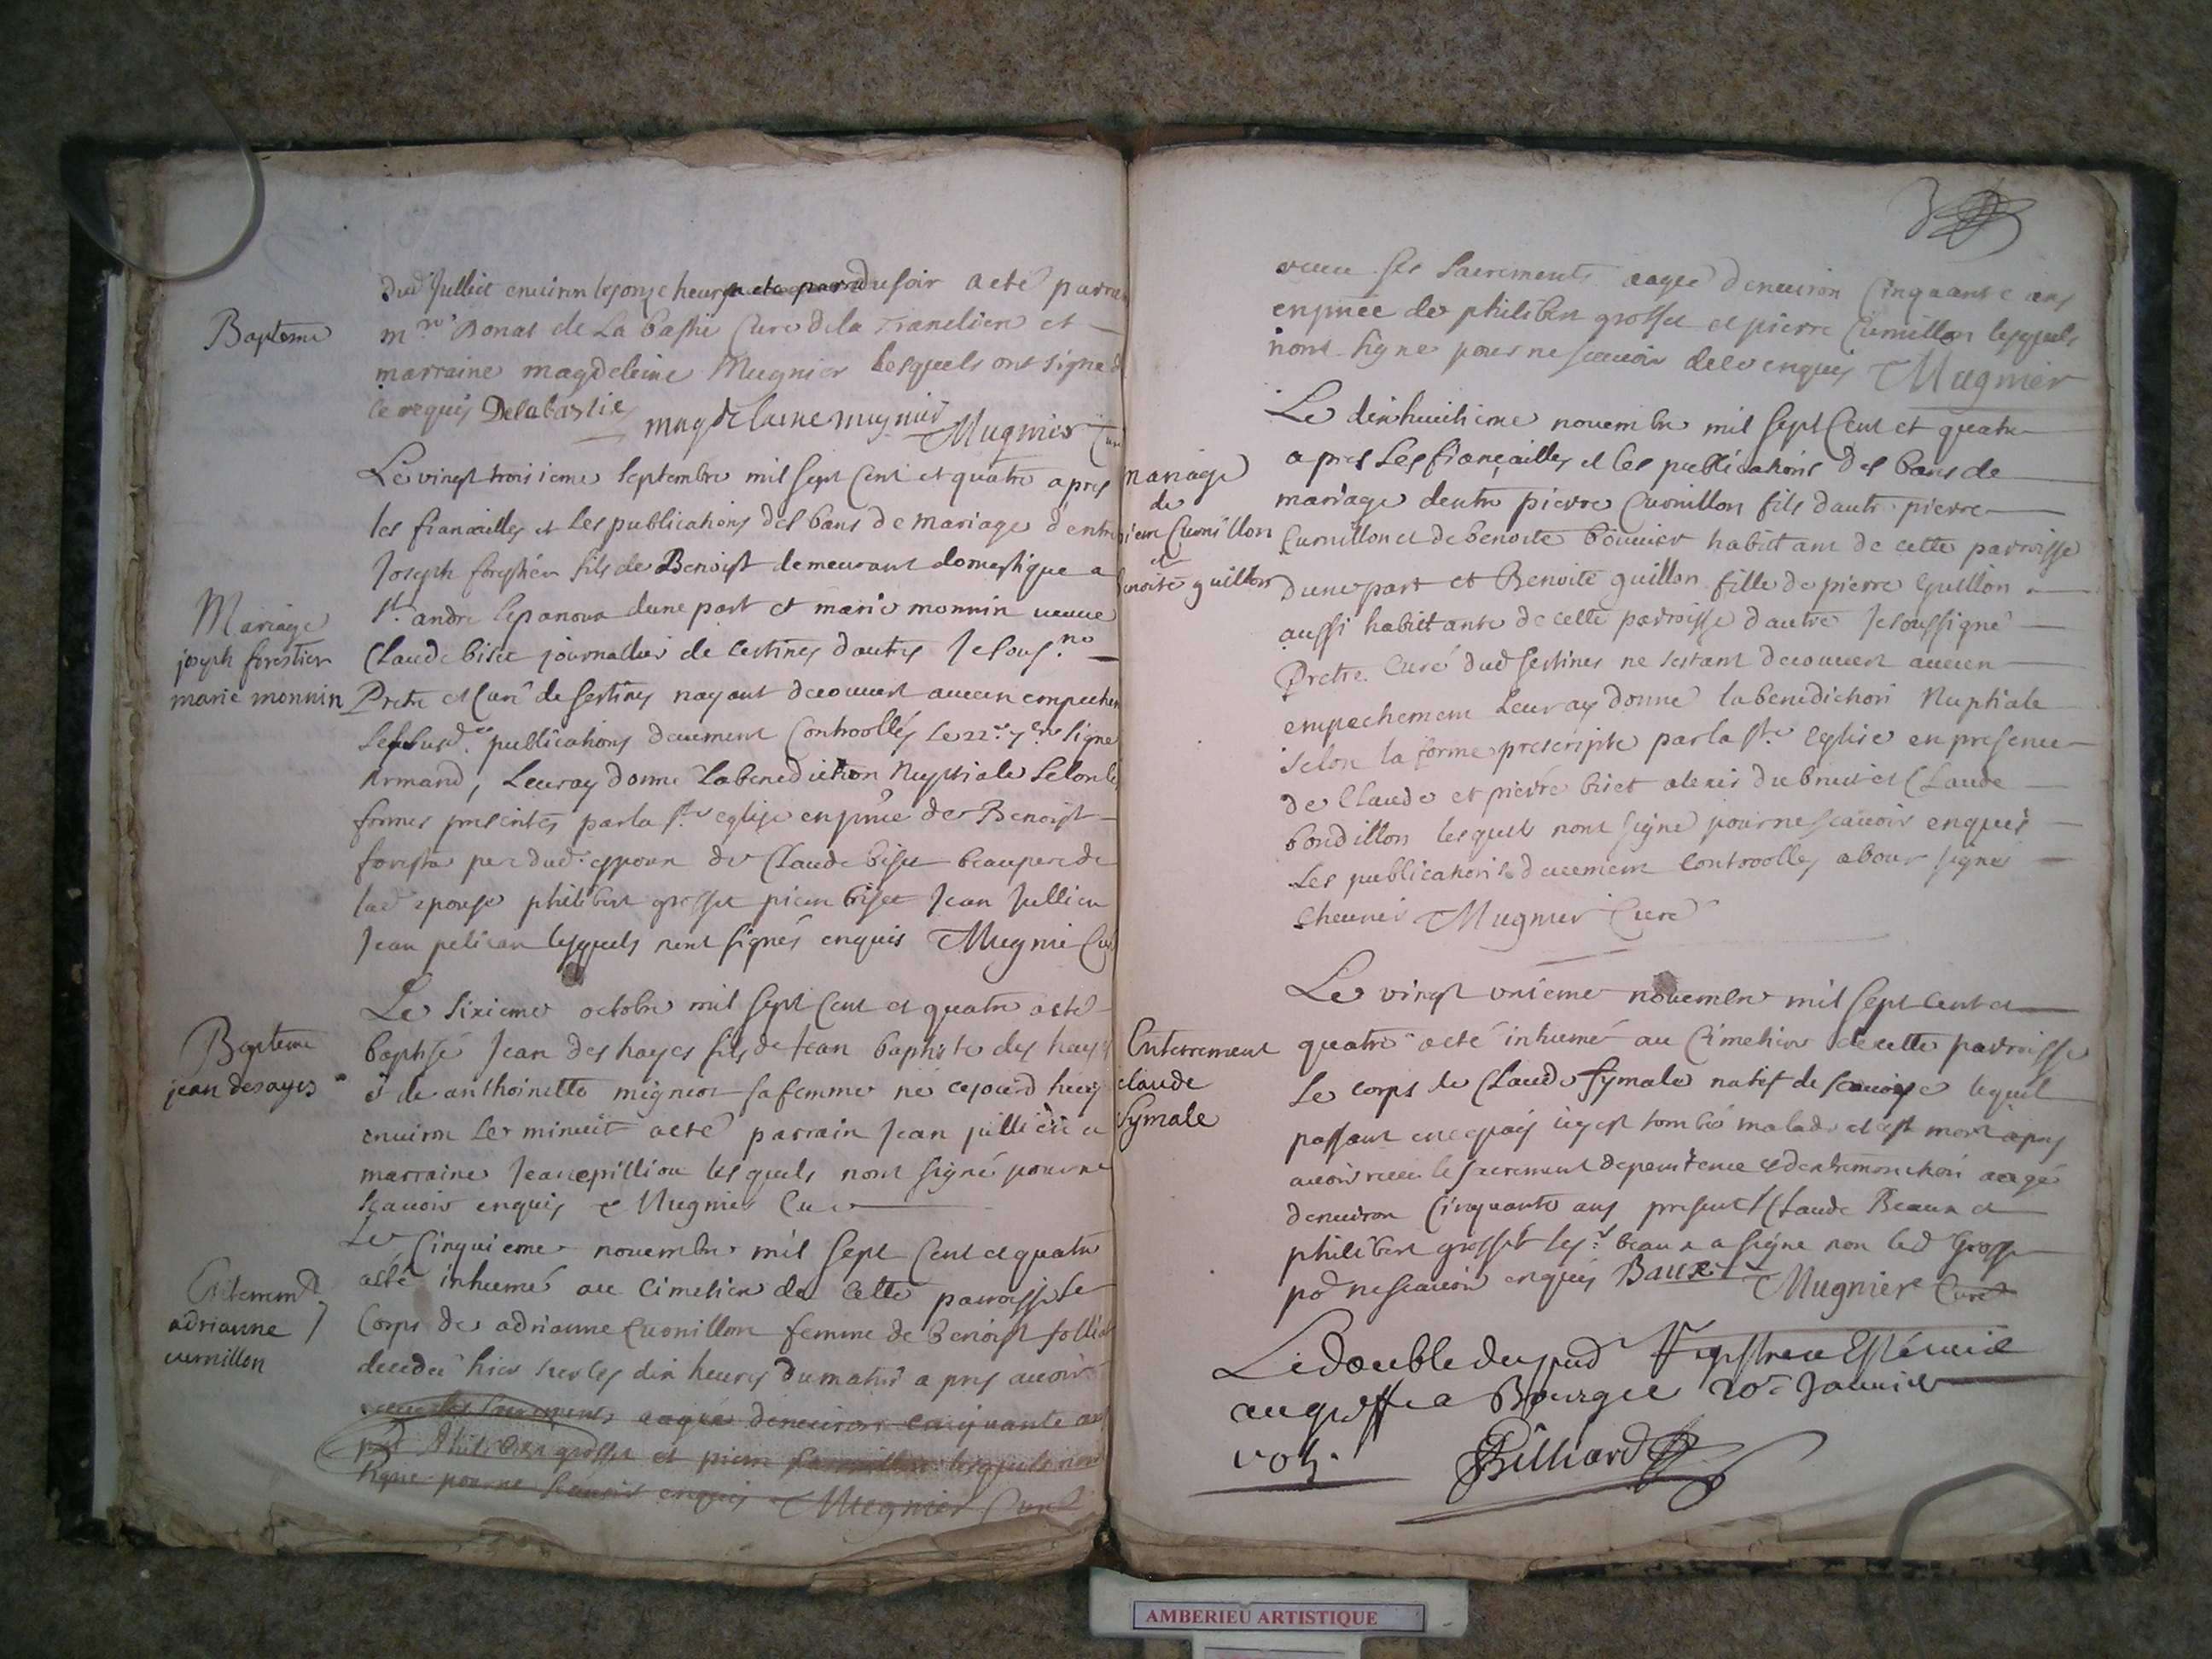 Bapteme
dud Julliet environ les onze heures du soir a eté parrain
mre Donat de La bastie Curé de la Tranclière et
marraine magdeleine Mugnier lesquels ont signé de
ce requis Delabastie magdelaine mugnier Mugnier Curé
Mariage
joseph forestier
marie monnin
Le vingt troisieme septembre mil sept Cent et quatre apres
les fiancailles et les publications des bans de mariage d'entre
Joseph forestier fils de Benoist demeurant domestique a
st. andre lepanoux dune part et marie monnin veuve
Claude biset journallier de Certines dautre Je sousné
Pretre et Curé de Sertines nayant decouvert aucun empechem
publications deuement Controollés le 22e 7bre signé
Armand, Leur ay donné La benediction Nuptiale selon les
formes prescrites par la ste eglise en pnce de Benoist
forestier pere dud. espoux de Claude biset beaupere de
lad epouse philibert grosset pierre biset Jean Jullien
Jean pelican lesquels nont signés enquis Mugnie Curé
Bapteme
jean desayes
Le sixieme octobre mil sept Cent et quatre a esté
baptisé Jean des hayes fils de Jean baptiste des hayes
et de anthoinette mignot sa femme né cejourd huy
environ le minuit a eté parrain Jean et
marraine lesquels nont signé pour ne
scavoir enquis Mugnier Curé
Enterremt
adrianne
curnillon
Le Cinquieme novembre mil sept Cent et quatre
a esté inhumé au Cimetiere de Cette parroisse le
Corps de adrianne Curnillon femme de benoist folliet
decedée hier sur les dix heures du matin apres avoir
receu les sacrements aagée denviron cinquante ans
pnt Philibert grosset et pierre Curnillon lesquels nont
signé pour ne scavoir enquis Mugnier Curé
receu ses sacrements aagée denviron Cinquante ans
en pnce de philibert grosset et pierre Curnillon lesquels
nont signé pour ne scavoir de ce enquis Mugnier
mariage
de
pierre Curnillon
et
benoite guillon
Le dixhuitieme novembre mil sept Cent et quatre
apres Les fiançailles et les publications des bans de
mariage dentre pierre Curnillon fils dautre pierre
Curnillon et de benoite bouvier habittant de cette parroisse
dune part et Benoite guillon fille de pierre Guillon
aussi habittante de cette parroisse dautre Je soussigné
Pretre Curé dud sertines ne sestant decouvert aucun
empechement Leur ay donné la benediction Nuptiale
selon la forme prescripte par la ste eglise en presence
de Claude et pierre biset alexis dubruit et Claude
bondillon lesquels nont signé pour ne scavoir enquis
Les publications deuement Controollés a bour signé
Chevrier Mugnier Curé
Enterrement
claude
Symale
Le vingt unieme novembre mil sept Cent et
quatre a eté inhumé au Cimetiere de cette parroisse
Le corps de Claude Symale natif de scavoye lequel
passant en ce pays s'y est tombé malade et est mort apres
avoir receu le sacrement de penitence et dextremonction aagé
denviron Cinquante ans present Claude Beaux et
philibert grosset led sr beaux a signé non led Grosset
po ne scavoir enquis Baux Mugnier Curé
Le double du pnt Registre a Esté mis
au greffe a Bourg le 20e Janvier
1705.
Billiard
AMBERIEU ARTISTIQUE